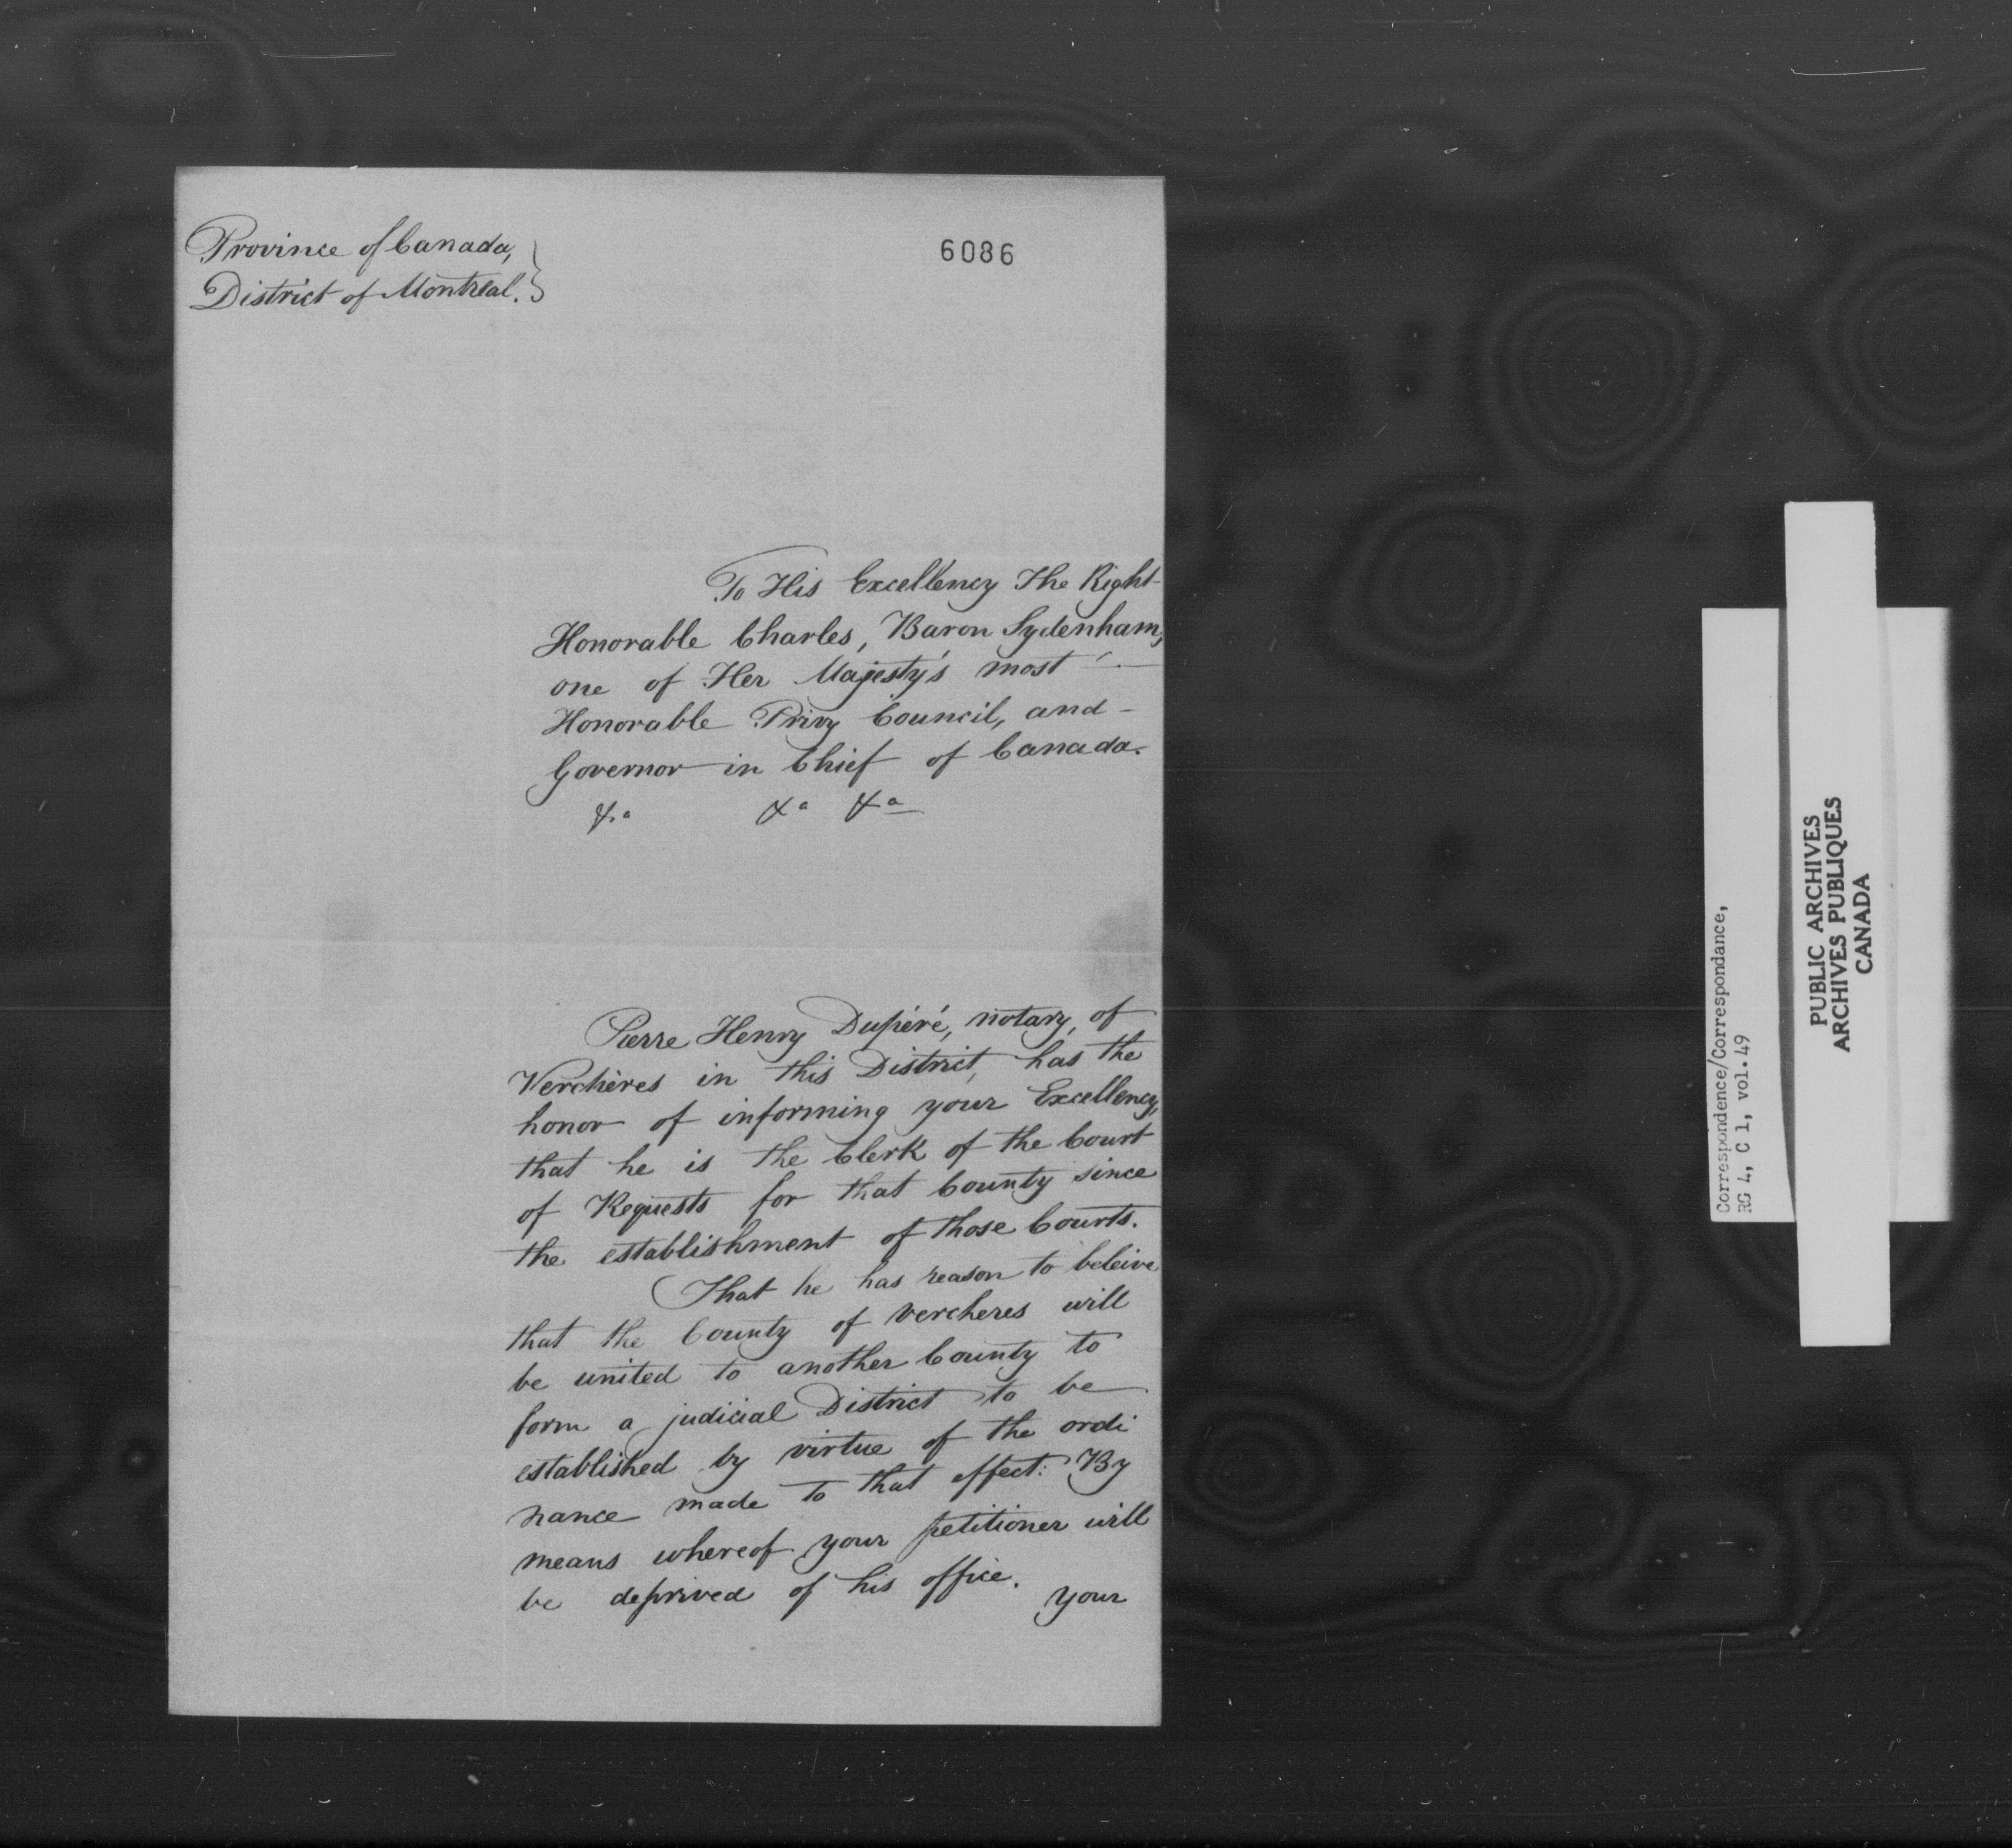 Province of Canada,
District of Montreal.
6086
To His Excellency The Right
Honorable Charles, Baron Sydenham,
one of Her Majesty's most
Honorable Privy Council, and -
Governor in Chief of Canada.
&a &a &a
Pierre Henry Dupéré, notary, of
Verchères in this District, has the
honor of informing your Excellency,
that he is the Clerk of the Court
of Requests for that County since
the establishment of those Courts.
That he has reason to beleive
that the County of Vercheres will
be united to another County to
form a judicial District to be
established by virtue of the ordi
nance made to that effect: By
means whereof your petitioner will
be deprived of his office.
Your
Correspondence/Correspondance,
RG 4, C 1, vol. 49
PUBLIC ARCHIVES
ARCHIVES PUBLIQUES
CANADA